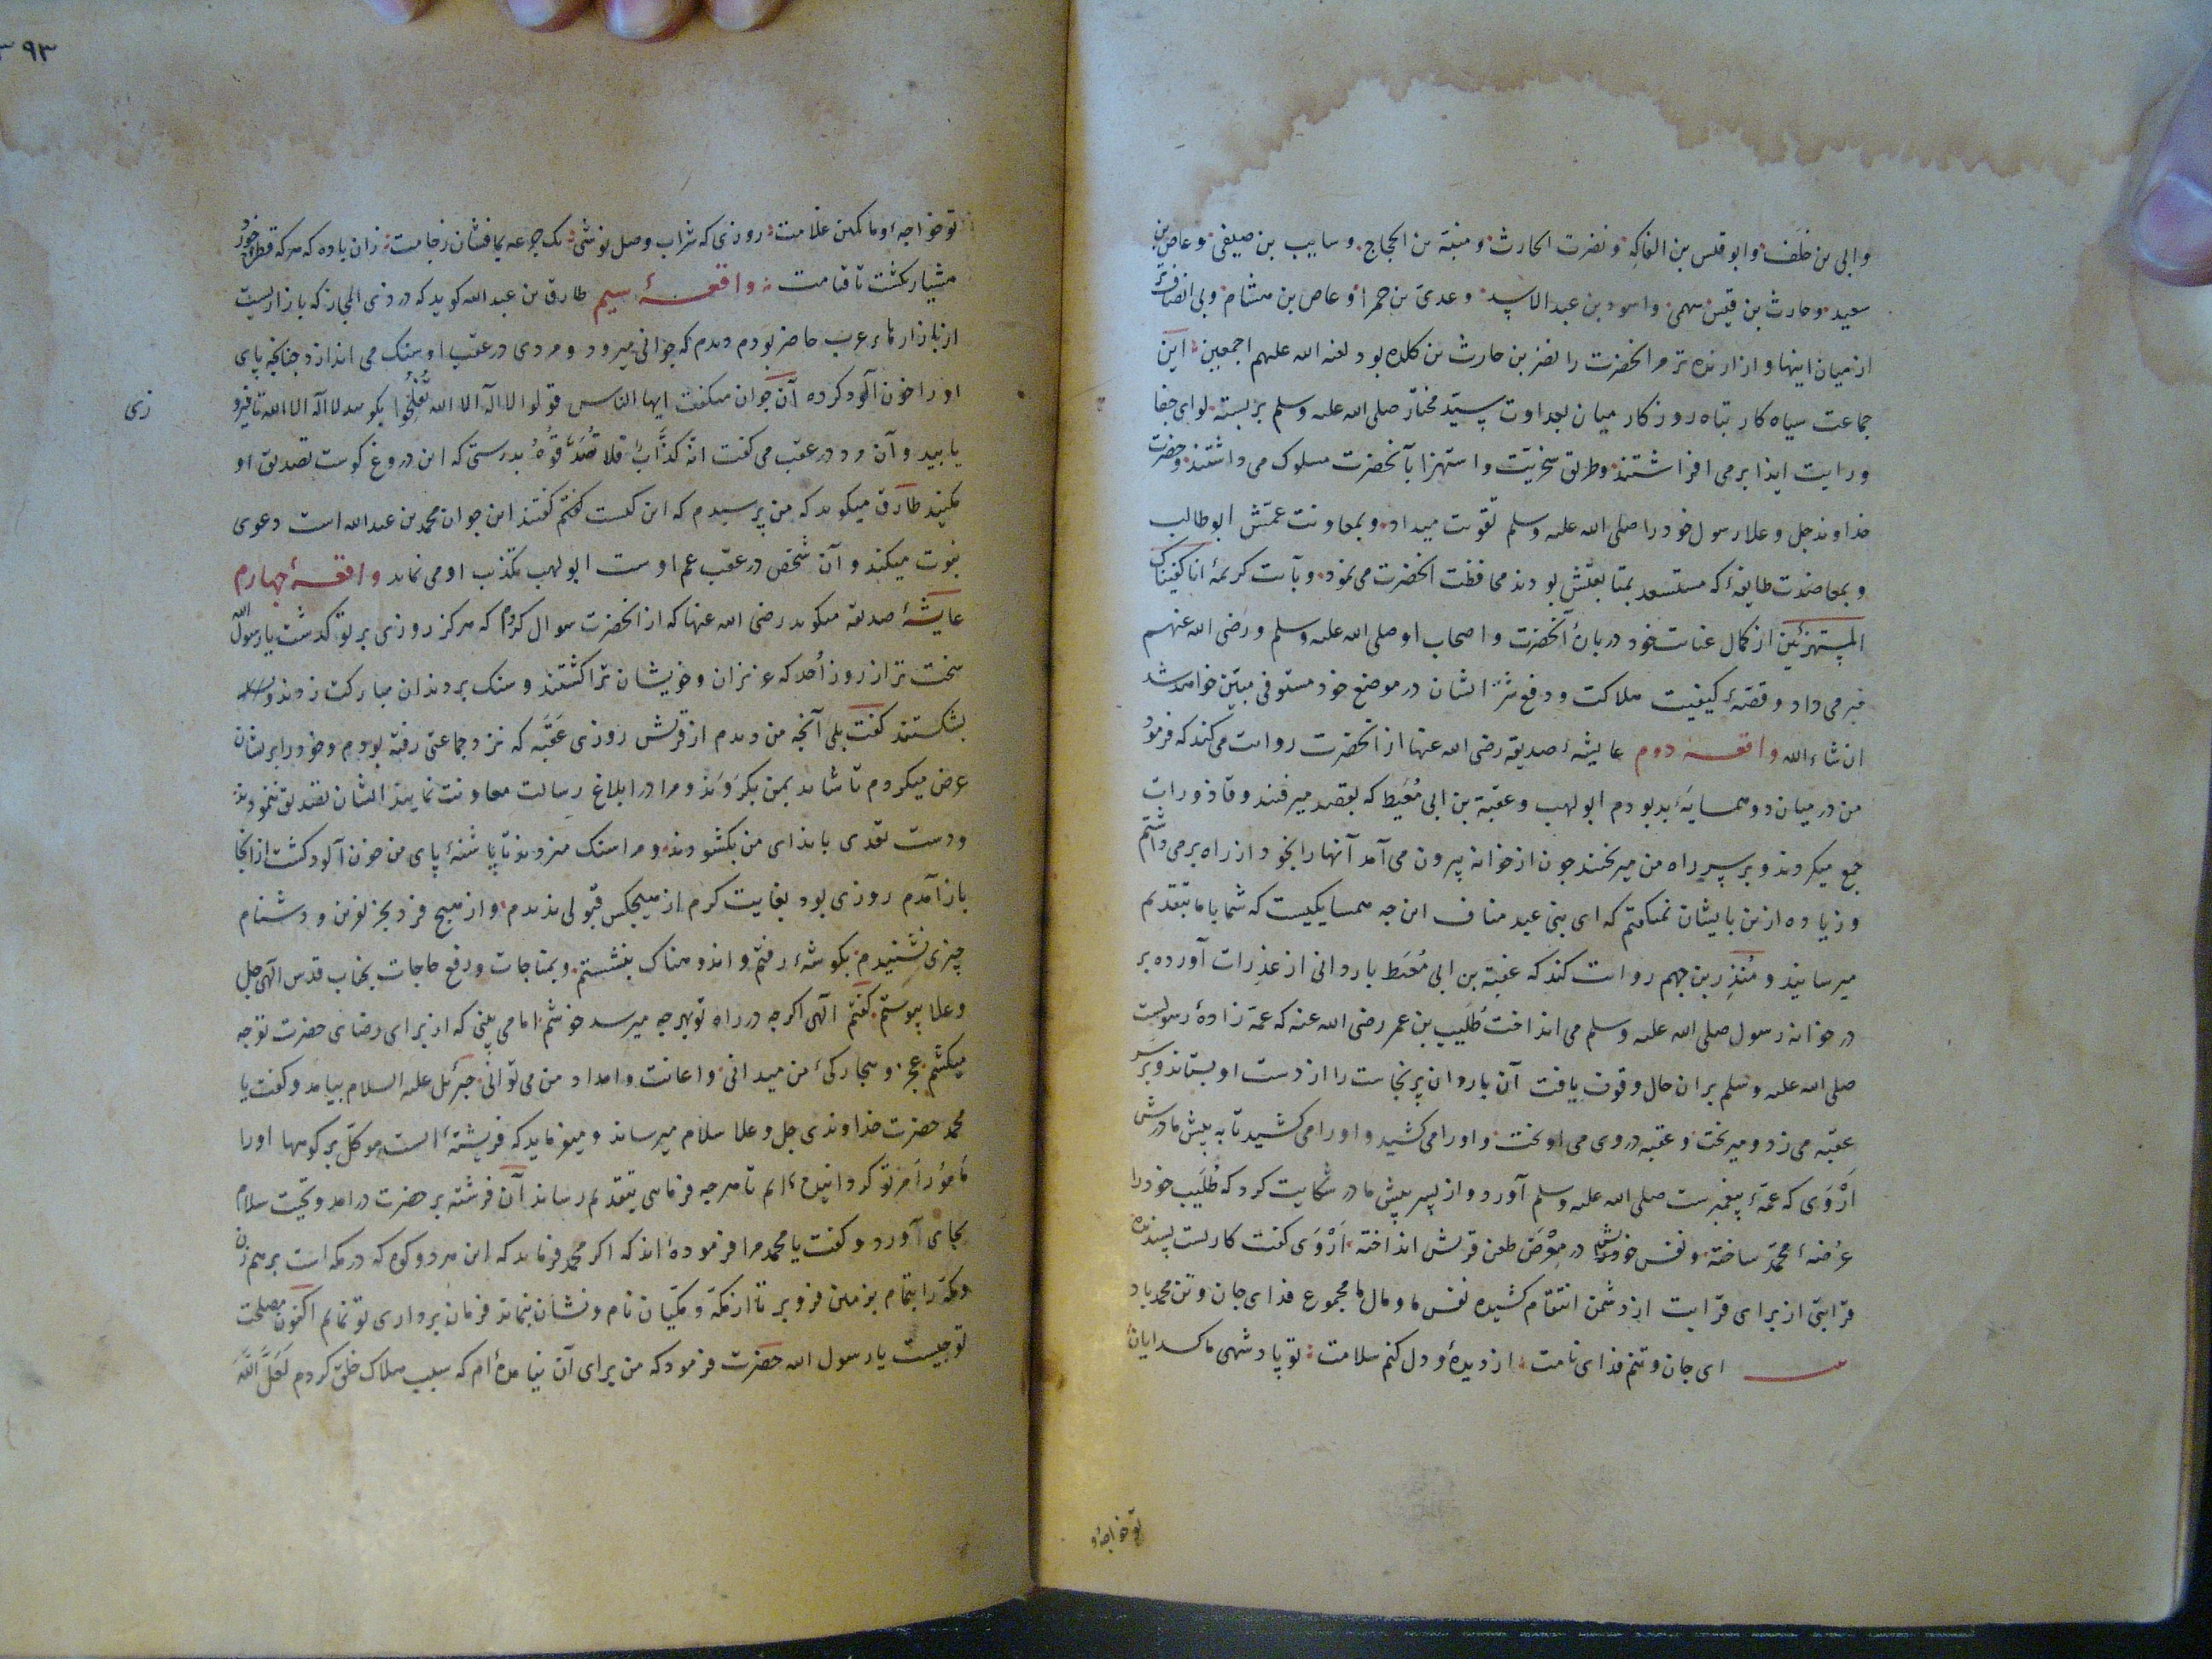 وابی بن خلف وابو قیس بن الفاکه و نضر بن الحارث و منبّه بن الحجاج و سایب بن صیفی و عاص بن
سعید و حارث بن قیس سهمی و اسود بن عبد الاسد و عدی بن حمرا و عاص بن هشام ولی انصاف تر
از میان اینها و ازارنده تر مر انحضرت را نضر بن حارث بن کلده بود لعنه الله علیهم اجمعین این
جماعت سیاه کار تباه روزکار میان بعداوت سیّد مختار صلی الله علیه وسلم بربسته لوای جفا
ورایت ایذا برمی افراشتند وطریق سخریّت و استهزا بآنحضرت مسلوک می داشتند وحضرت
خداوند جل و علا رسول خود را صلی الله علیه وسلم تقویت میداد و بمعاونت عمّش ابوطالب
و بمعاضدت طایفهٔ که مستسعد بمتابعتش بودند محافظت انحضرت می نمود و بآیت کریمهٔ انا کفیناک
المستهزئین از کمال عنایت خود دربارهٔ آنحضرت و اصحاب او صلی الله علیه وسلم و رضی الله عنهم
خبر می داد و قصّهٔ کیفیت هلاکت و دفع شرّ ایشان در موضع خود مستوفی مبیّن خواهد شد
ان شاء الله واقعهٔ دوم عایشهٔ صدیقه رضی الله عنها از انحضرت روایت می کند که فرمود
من در میان دو همسایهٔ بد بودم ابولهب و عقبة بن ابی مُعَیط که بقصد میرفتند و قاذورات
جمع میکردند و بر سر راه من میریختند چون از خوانه بیرون می آمد آنها را بخود از راه برمی داشتم
و زیاده ازین بایشان نمیکفتم که ای بنی عبد مناف این چه همسایکیست که شما با ما بتقدیم
میرسانید و مُنذِر بن جهم روایت کند که عقبة بن ابی مُعَیط باروانی از عذرات آورده بر
در خوانه رسول صلی الله علیه وسلم می انداخت طُلَیب بن عمر رضی الله عنه که عمّه زادهٔ رسولست
صلی الله علیه وسلم بران حال وقوف یافت آن باروان پر نجاست را از دست او بستاند و بر سر
عقبه می زد و میریخت و عقبه در وی می اویخت و او را می کشید و او را می کشید تا به پیش مادرش
اَرْوَی که عمّهٔ پیغمبرست صلی الله علیه وسلم آورد و از پسر پیش مادر شکایت کرد که طُلَیب خود را
عُرضهٔ محمّد ساخته و نفس خویش در مَعْرَض طعن قریش انداخته اَرْوَی کفت کاریست پسندیده
قرابتی از برای قرابت از دشمن انتقام کشیده نفس ما و مال ما مجموع فدای جان و تن محمد باد
ای جان و تنم فدای نامت از دیدهٔ و دل کنم سلامت تو پادشهی ما کدایان
تو خواجهٔ و
٣٩٣
تو خواجهٔ و ما کمین غلامت روزی که شراب وصل نوشی یک جرعه بما فشان ز جامت زان باده که هر که قطرهٔ خورد
هشیار نکشت تا قیامت واقعهٔ سیم طارق بن عبد الله کوید که در ذی المجاز که بازاریست
از بازارهاء عرب حاضر بودم دیدم که جوانی میرود و مردی در عقب او سنک می اندازد چنانچه پای
او را خون آلود کرده آن جوان میکفت ایها الناس قولوا لا اله الا الله تُفْلِحُوا بکویید لا اله الا الله تا فیروزی
یابید و آن مرد در عقب می کفت انّه کذّابٌ فلا تُصَدِّقُوهُ بدرستی که این دروغ کوست تصدیق او
مکنید طارق میکوید که من پرسیدم که این کیست کفتم کفتند این جوان محمد بن عبد الله است دعوی
نبوت میکند و آن شخص در عقب عم اوست ابولهب تکذیب او می نماید واقعهٔ چهارم
عایشهٔ صدیقه میکوید رضی الله عنها که از انحضرت سوال کردم که هرکز روزی بر تو کذشت یا رسول الله
سخت تر از روز اُحد که عزیزان و خویشان ترا کشتند و سنک بر دندان مبارکت زدند و
بشکستند کفت بلی آنچه من دیدم از قریش روزی عَقَبَه که نزد جماعتی رفته بودم و خود را بریشان
عرض میکردم تا شاید بمن بکرَوَند و مرا در ابلاغ رسالت معاونت نمایند ایشان تصدیق ننمودند
و دست تعدی بایذای من بکشودند و مرا سنک میزدند تا پاشنهٔ پای من خون آلود کشت از انجا
باز آمدم روزی بود بغایت کرم از هیچکس قبولی ندیدم و از هیچ فرد بجز نفرین و دشنام
چیزی نشنیدم بکوشهٔ رفتم و اندوهناک بنشستم و بمناجات و رفع حاجات بجناب قدس الهی جل
و علا پیوستم کفتم الهی اکرچه در راه تو بهرچه میرسد خوشم اما می بینی که از برای رضای حضرت توجه
میکشم عجز و بیچارکیٔ من میدانی و اعانت و امداد من می توانی جبرئیل علیه السلام بیامد و کفت یا
محمد حضرت خداوندی جل و علا سلام میرساند و میفرماید که فریشتهٔ است موکّل بر کوهها او را
مأمور امر تو کردانیده ایم تا هرچه فرمایی بتقدیم رساند آن فرشته بر حضرت درامد و تحیّت سلام
بجای آورد و کفت یا محمد مرا فرموده اند که اکر محمد فرماید که این هر دو کوه که در مکه است برهم زن
و مکّه را بتمام بزمین فرو بر تا از مکّه و مکّیان نام و نشان نماند فرمان برداری تو نمایم اکنون مصلحت
تو چیست یا رسول الله حضرت فرمود که من برای آن نیامده ام که سبب هلاک خلق کردم لَعَلَّ اللّٰهَ